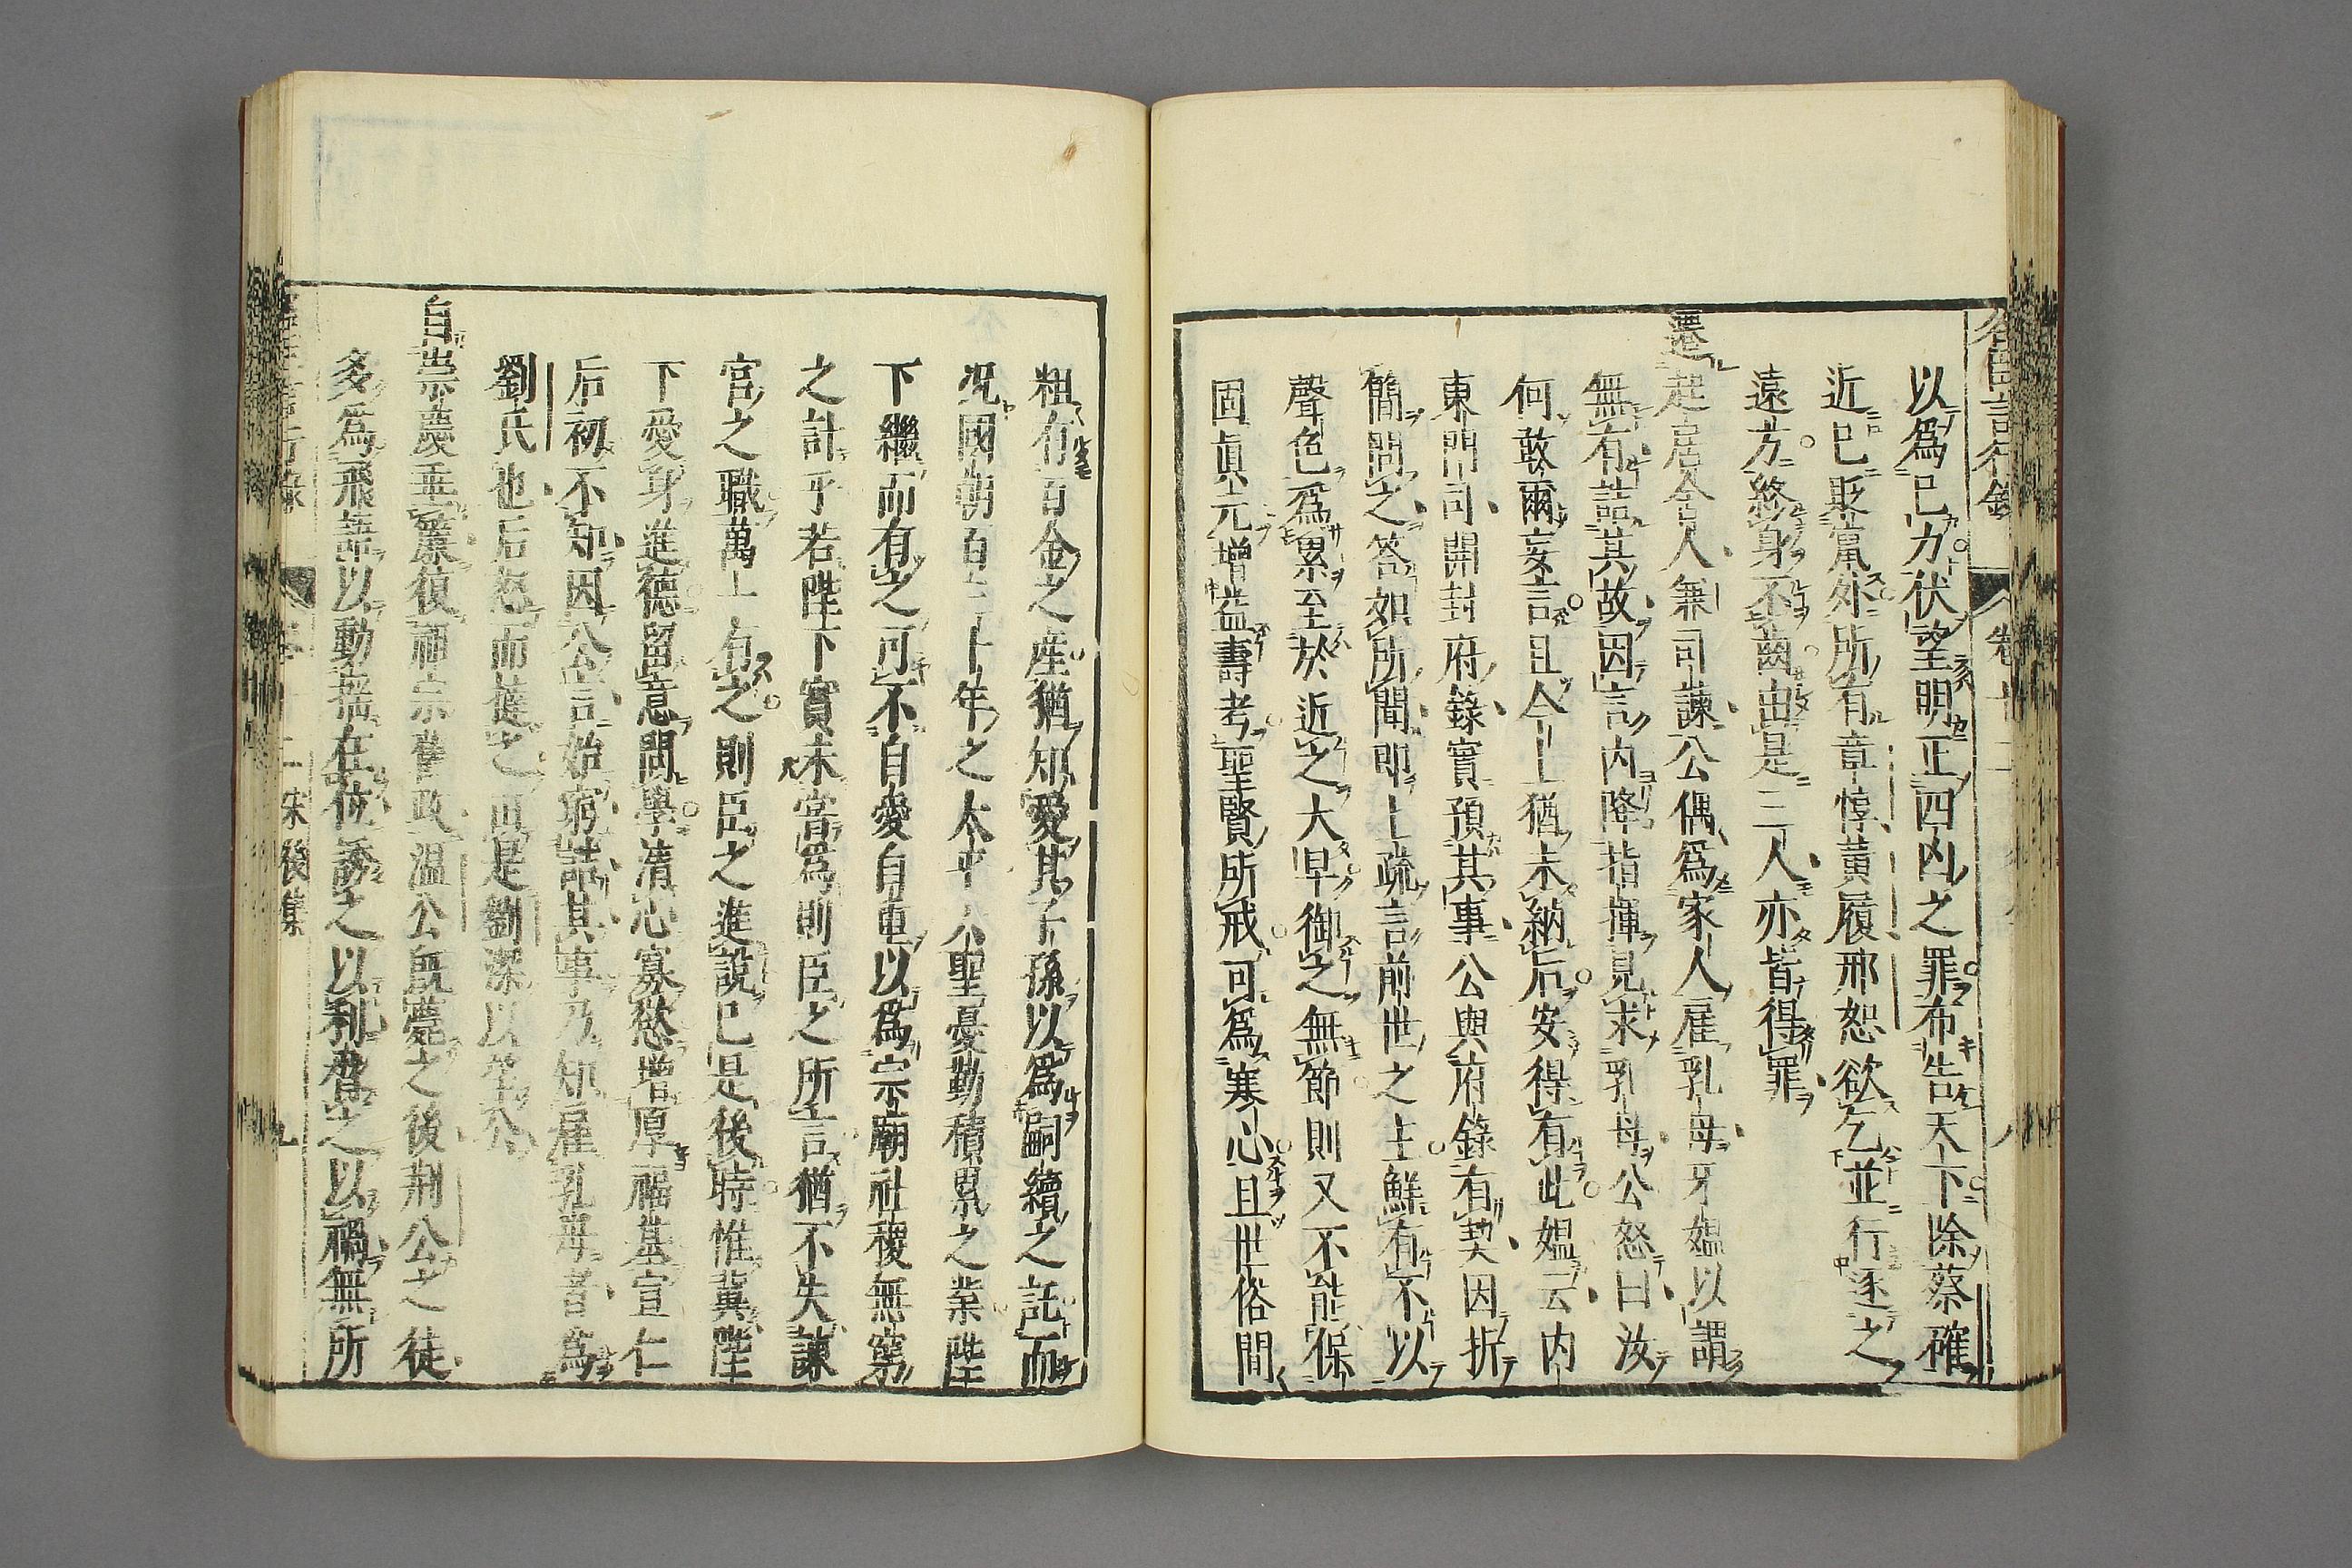 名臣言行錄
卷十二
以爲已力伏望明正四凶之罪布告天下除蔡確
近已貶竄外所有章惇黃履邢恕欲乞並行逐之
遠方終身不齒由是三人亦皆得罪
遷起居舍人兼司諫公偶爲家人雇乳母牙媼以謂
無有詰其故因言內降指揮見求乳母公怒曰汝
何敢爾妄言且今上猶未納后安得有此媼云內
東門司開封府錄實預其事公與府錄有契因折
簡問之答如所聞卽上疏言前世之主鮮有不以
聲色爲累至於近之大早御之無節則又不能保
固眞元增益壽考聖賢所戒可爲寒心且世俗間
粗有百金之產猶知愛其子孫以爲嗣續之託而
況國朝百二十年之太平八聖憂勤積累之業陛
下繼而有之可不自愛自重以爲宗廟社稷無窮
之計乎若陛下實未嘗爲則臣之所言猶不失諫
官之職萬上有之則臣之進說已是後時惟冀陛
下愛身進德留意問學清心寡慾增厚福基宣仁
后初不知因公言始窮詰其事乃知雇乳母者爲
劉氏也后怒而撻之而是劉深以望公
自崇慶垂簾復神宗舊政溫公旣薨之後荊公之徒
多爲飛語以動搖在位誘之以利脅之以禍無所
宋後集
九